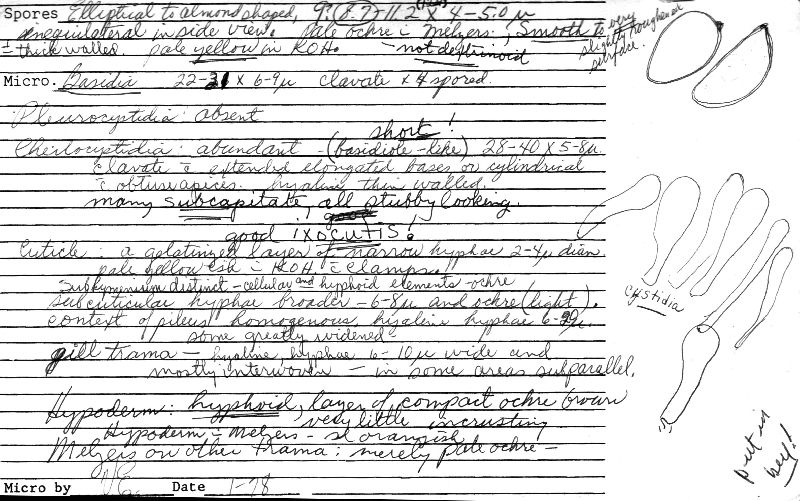 Spores Elliptical to almond shaped, 9 (8.7)-11.2 (12) x 4-5.0 µ
inequilateral in side view. pale ochre c̄ Melzers; Smooth to very slightly roughened surface.
± thick walled pale yellow in KOH. - not dextrinoid
Micro. Basidia 22-31 x 6-9µ clavate x 4 spored.
Pleurocystidia: absent
short!
Cheilocystidia: abundant - (basidiole-like) 28-40 x 5-8µ
clavate c̄ extended elongated bases or cylindrical
c̄ obtuse apices. hyaline, thin walled.
many subcapitate, all stubby looking.
good
good ixocutis!
Cuticle: a gelatinized layer of narrow hyphae 2-4µ diam.
pale yellowish c̄ KOH. c̄ clamps.
Subhymenium distinct - cellular and hyphoid elements - ochre
subcuticular hyphae broader - 6-8µ and ochre (light).
context of pileus homogenous, hyaline hyphae 6-20µ.
some greatly widened
gill trama - hyaline, hyphae 6-10µ wide and
mostly interwoven - in some areas subparallel.
Hypoderm: hyphoid, layer of compact ochre brown
very little incrusting
Hypoderm c̄ Melzers - sl orangish
Melzers on other trama: merely pale ochre -
Micro by Date 1-78
cystidia
put in key!